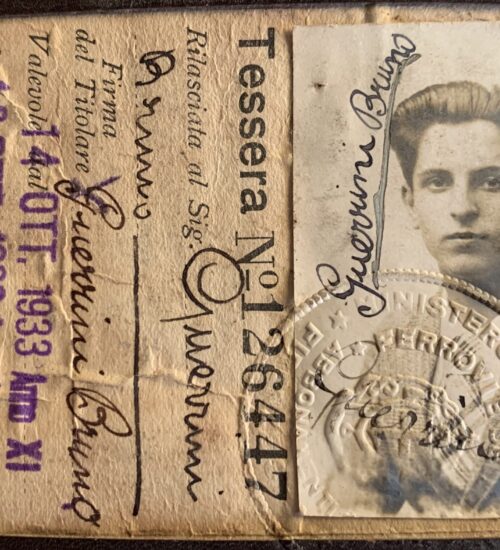 Tessera No 126447
Rilasciata al Sig. Guerrini
Bruno
Firma
del Titolare Guerrini Bruno
Valevole dal
14 OTT. 1933 Anno XI
Guerrini Bruno
MINISTER
FERROVI